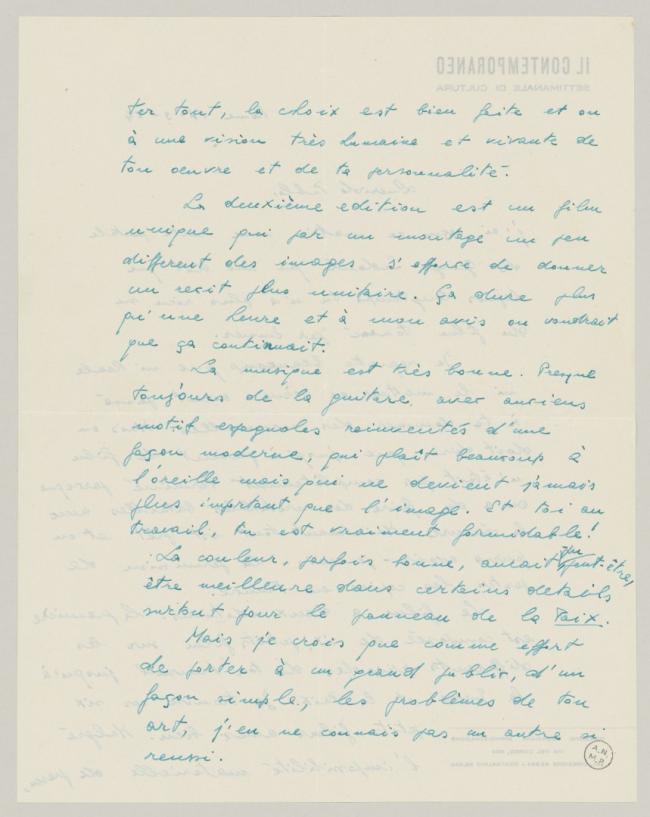 IL CONTEMPORANEO
SETTIMANALE DI CULTURA
ter tout, la choix est bien faite et on
à une vision très humaine et vivante de
ton oeuvre et de ta personnalité.
La deuxième edition est un film
unique qui par un montage un peu
different des images s'efforce de donner
un recit plus unitaire. Ça dure plus
qu'une heure et à mon avis on voudrait
que ça continuait.
La musique est très bonne. Presque
toujours de la guitare avec anciens
motif espagnoles reinventés d'une
façon moderne, qui plaît beaucoup à
l'oreille mais qui ne devient jamais
plus important que l'image. Et toi au
travail, tu est vraiment formidable!
La couleur, parfois bonne, aurait pu peut-être,
être meilleure dans certains details
surtout pour le panneau de la Paix.
Mais je crois que comme effort
de porter à un grand public, d'un
façon simple, les problèmes de ton
art, j'en ne connais pas un autre si
reussi.
A.N.
M.P.